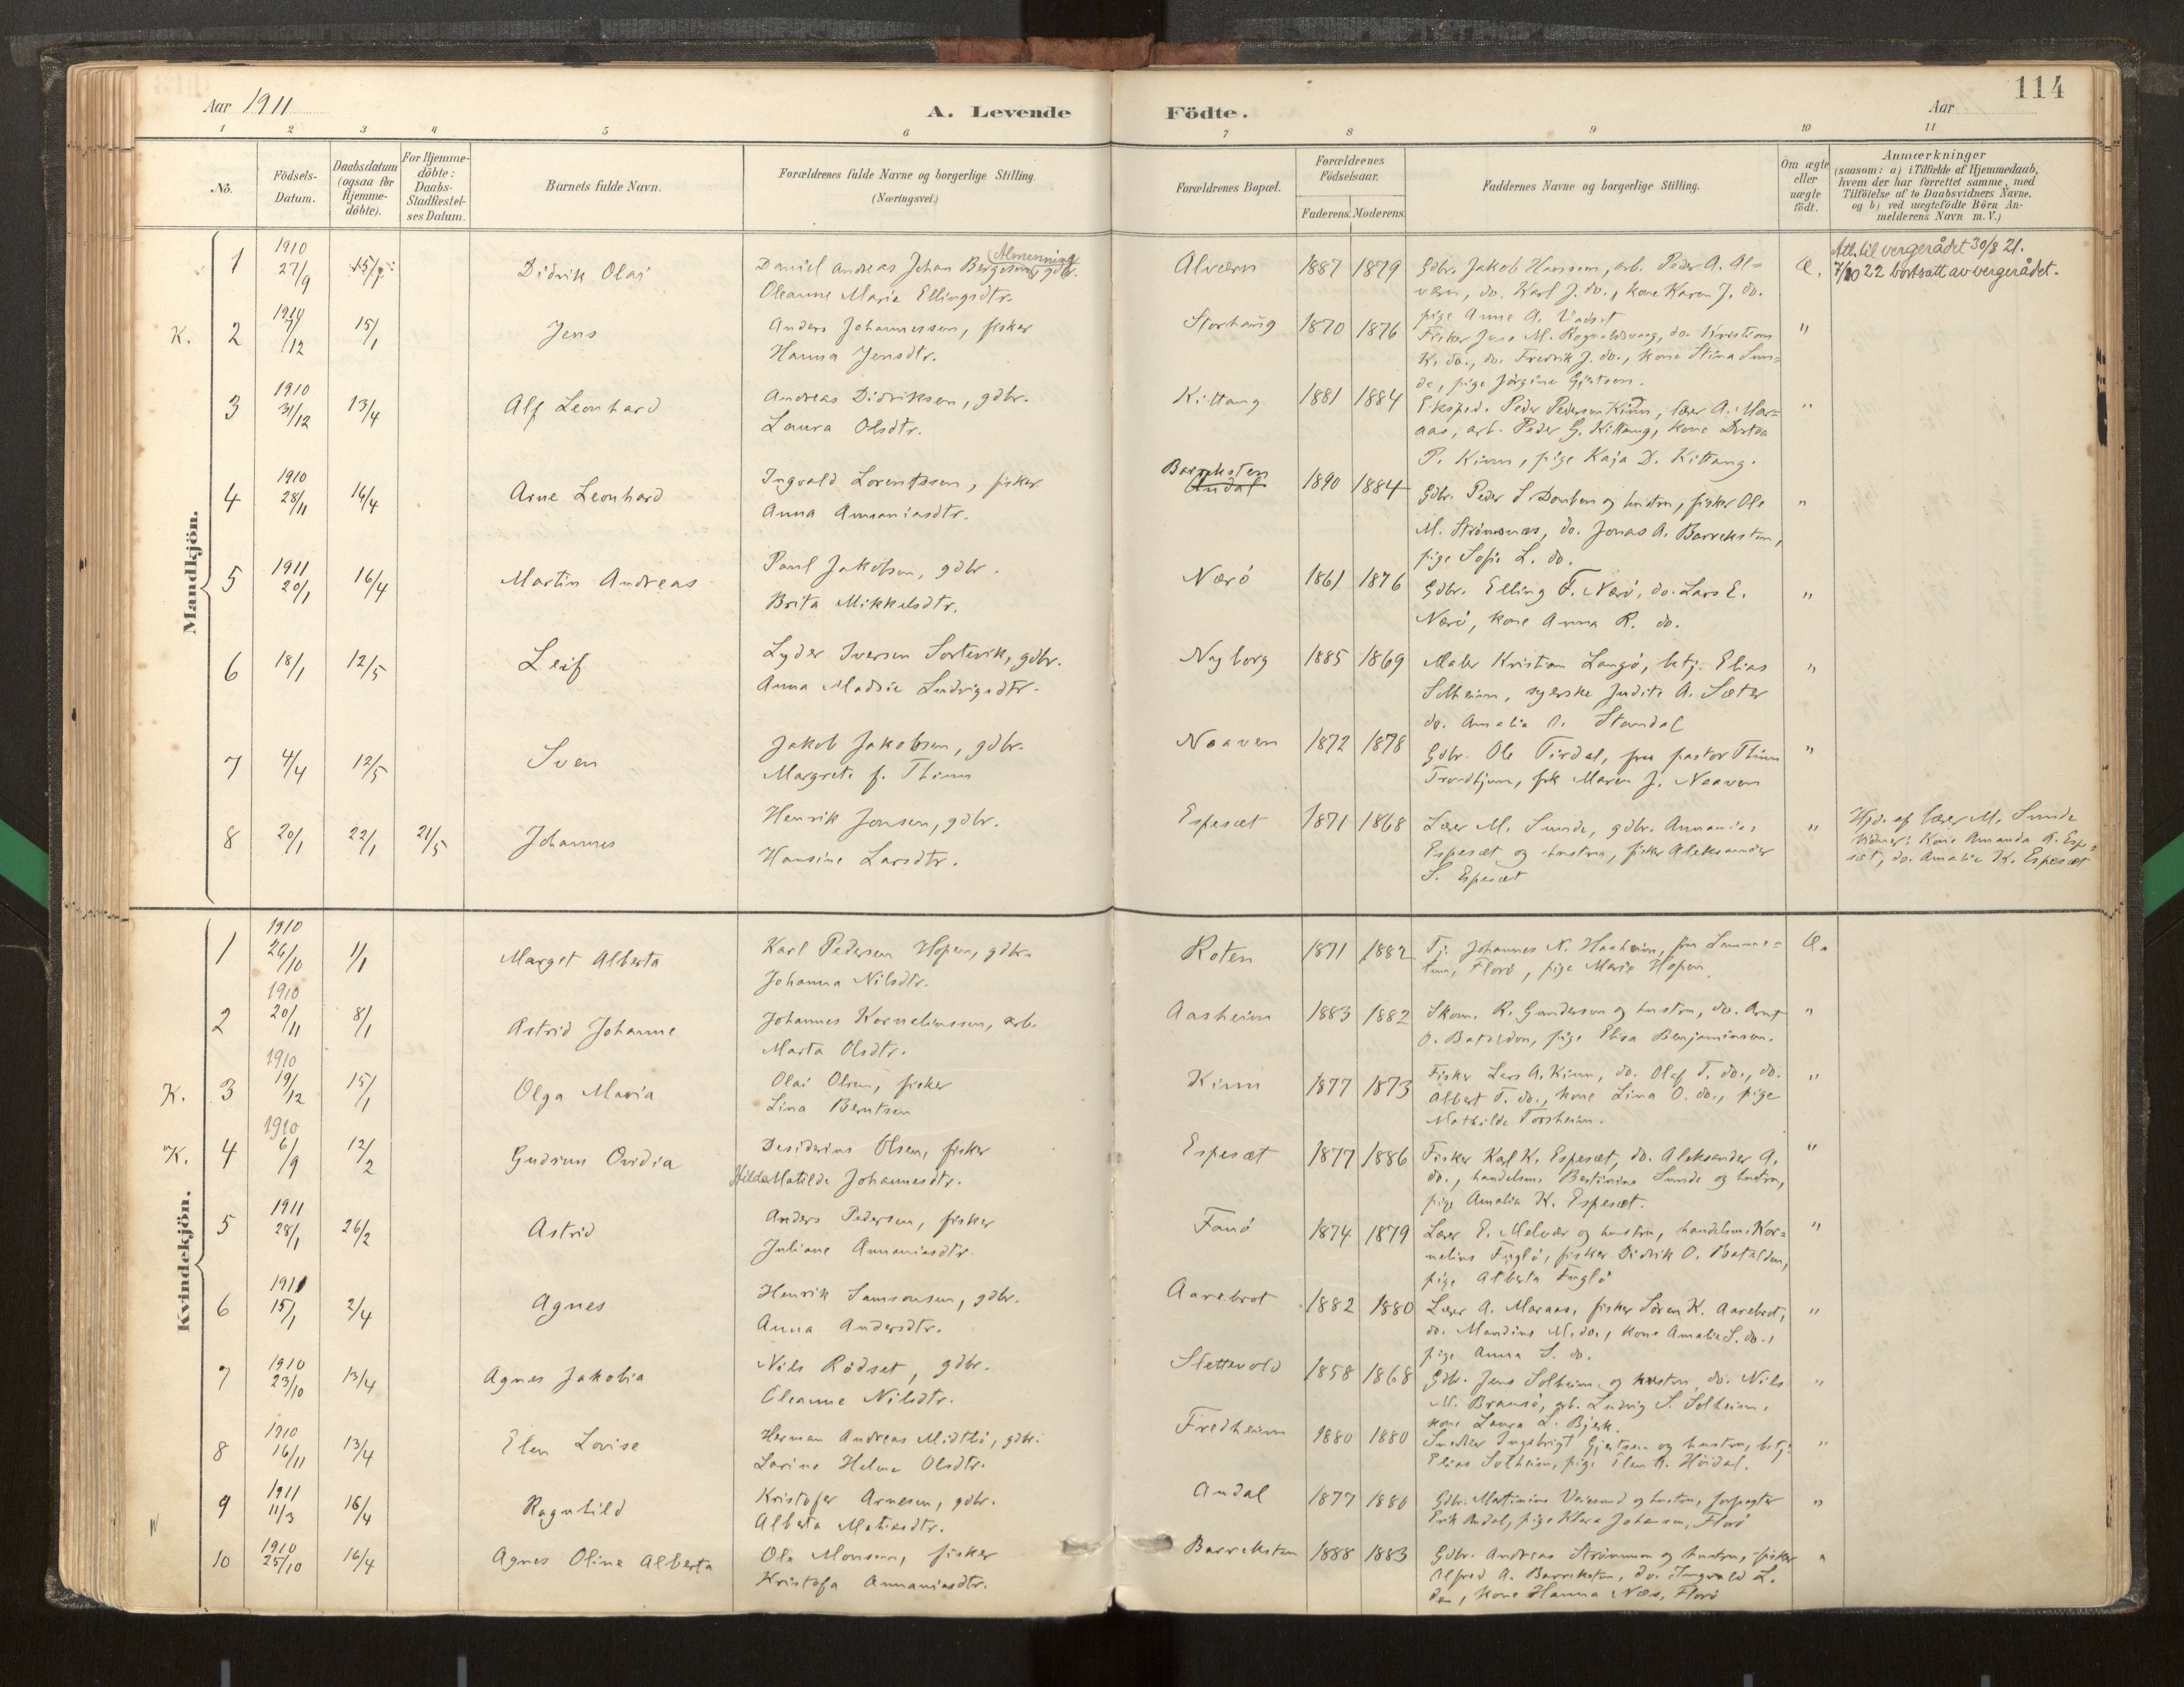 Aar 1911
A. Levende Födte.
Aar
114
1 2 3 4 5 6 7 8 9 10 11
No.
Födsels-Datum.
Daabsdatum (ogsaa for Hjemme-döbte).
For Hjemme-döbte: Daabs-Stadfæstel-ses Datum.
Barnets fulde Navn.
Forældrenes fulde Navne og borgerlige Stilling. (Næringsvei.)
Forældrenes Bopæl.
Forældrenes Födselsaar.
Faderens. Moderens.
Faddernes Navne og borgerlige Stilling.
Om ægte eller uægte födt.
Anmærkninger
(saasom: a) i Tilfælde af Hjemmedaab, hvem der har forrettet samme, med Tilföielse af to Daabsvidners Navne. og b) ved uægtefödte Börn An-melderens Navn m. V.)
Mandkjön.
1 1910 27/9 15/1 Didrik Olai
Daniel Andreas Johan Bergesen, gdbr. Almenning
Oleanne Marie Ellingsdtr.
Alværn 1887 1879
Gdbr. Jakob Hansen, arb. Peder A. Al=
værn, do. Karl J. do., kone Karen J. do.
pige Anne A. Vadset
Æ.
Atl. til vergerådet 30/8 21.
7/10 22 bortsatt av vergerådet.
K. 2 1910 7/12 15/1 Jens
Anders Johannessen, fisker
Hanna Jensdtr.
Storhaug 1870 1876
Fisker Jens M. Rognaldsvaag, do. Kristian
K. do., do. Fredrik J. do., kone Stina Sun=
de, pige Jörgine Gjertsen.
"
3 1910 31/12 13/4 Alf Leonhard
Andreas Didriksen, gdbr.
Laura Olsdtr.
Kittang 1881 1884
Eksped. Peder Pedersen Kinn, lærer A. Mar=
aas, arb. Peder G. Kittang, kone
P. Kinn, pige Kaja D. Kittang.
"
4 1910 28/11 16/4 Arne Leonhard
Ingvald Lorentssen, fisker
Anna Ananiasdtr.
Barreksten
Andal
1890 1884
Gdbr. Peder S. Domben og hustru, fisker Ole
M. Strømsnæs, do. Jonas A. Barreksten,
pige Sofie L. do.
"
5 1911 20/1 16/4 Martin Andreas
Paul Jakobsen, gdbr.
Brita Mikkelsdtr.
Nærö 1861 1876
Gdbr. Elling F. Nærö, do. Lars E.
Nærö, kone Anna R. do.
"
6 18/1 12/5 Leif
Lyder Iversen Sortevik, gdbr.
Anna Madsie Ludvigsdtr.
Nyborg 1885 1869
Maler Kristian Langö, betj. Elias
Solheim, syerske Judite A. Sæter
do. Amalia O. Standal
"
7 4/4 12/5 Sven
Jakob Jakobsen, gdbr.
Margrete f. Thinn
Naaven 1872 1878
Gdbr. Ole Tirdal, fru pastor Thinn
Trondhjem, frk Maren J. Naaven
"
8 20/1 22/1 21/5 Johannes
Henrik Jonsen, gdbr.
Hansine Larsdtr.
Espesæt 1871 1868
Lærer M. Sunde, gdbr. Annanias
Espesæt og hustru, fisker Aleksander
S. Espesæt
"
Hjd. af lærer M. Sunde
Vidner: Kone Amanda A. Espe=
sæt, do. Amalie K. Espesæt
Kvindekjön.
1 1910 26/10 1/1 Marget Alberta
Karl Pedersen Hopen, gdbr.
Johanna Nilsdtr.
Roten 1871 1882
Tj. Johannes N. Haaheim, fru
Florö, pige Marie Hopen.
Æ.
2 1910 20/11 8/1 Astrid Johanne
Johannes Korneliussen, arb.
Marta Olsdtr.
Aasheim 1883 1882
Skom. R. Gundersen og hustru, do. Arnt
O. Batalden, pige Elisa Benjaminsen.
"
K. 3 1910 19/12 15/1 Olga Maria
Olai Olsen, fisker
Lina Berntsen
Kinn 1877 1873
Fisker Lars A. Kinn, do. Olaf T. do., do.
Albert T. do., kone Lina O. do., pige
Mathilde Torsheim.
"
K. 4 1910 6/9 12/2 Gudrun Ovidia
Desiderius Olsen, fisker
Hilda Matilde Johannesdtr.
Espesæt 1877 1886
Fisker Karl K. Espesæt, do. Aleksander A.
do., handelsm. Bertinius Sunde og hustru,
pige Amalia K. Espesæt.
"
5 1911 28/1 26/2 Astrid
Anders Pedersen, fisker
Juliane Ananiasdtr.
Fanö 1874 1879
Lærer E. Melvær og hustru, handelsm. Kor=
nelius Fuglö, fisker Didrik O. Batalden,
pige Alberta Fuglö
"
6 1911 15/1 2/4 Agnes
Henrik Samsonsen, gdbr.
Anna Andersdtr.
Aarebrot 1882 1880
Lærer A. Maraas, fisker Sören K. Aarebrot,
do. Mandius M. do., kone Amalie S. do.,
pige Anna S. do.
"
7 1910 23/10 13/4 Agnes Jakobia
Nils Rödset, gdbr.
Oleanne Nilsdtr.
Slettevold 1858 1868
Gdbr. Jens Solheim og hustru, do. Nils
M. Bransö, arb. Ludvig S. Solheim,
kone Laura L. Bjerk.
"
8 1910 16/11 13/4 Elen Lovise
Herman Andreas Midtbö, gdbr.
Larine Helene Olsdtr.
Fredheim 1880 1880
Snedker Ingebrigt Gjertsen og hustru, betj.
Elias Solheim, pige Elen A. Höidal.
"
9 1911 11/3 16/4 Ragnhild
Kristofer Arnesen, gdbr.
Alberta Matiasdtr.
Andal 1877 1880
Gdbr. Martinius Veiesund og hustru, forpagter
Erik Andal, pige Klara Johansen, Florö
"
10 1910 25/10 16/4 Agnes Oline Alberta
Ole Monsen, fisker
Kristofa Annaniasdtr.
Barreksten 1888 1883
Gdbr. Andreas Strömmen og hustru, fisker
Alfred A. Barreksten, do. Ingvald L.
do., kone Hanna Næs, Florö
"